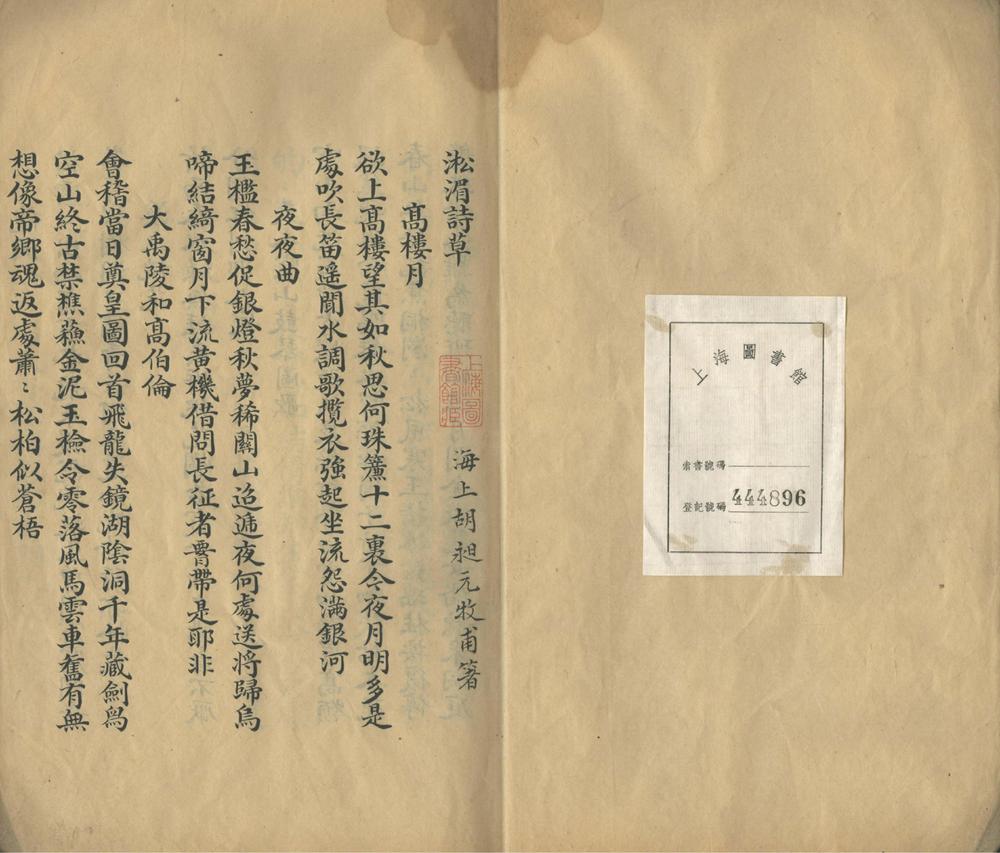 上海圖書館
索書號碼
登記號碼 444896
淞湄詩草
上海圖書館藏
海上胡昶元牧甫箸
高樓月
欲上高樓望其如秋思何珠簾十二裏今夜月明多是
處吹長笛遥聞水調歌攬衣強起坐流怨滿銀河
夜夜曲
玉檻春愁促銀燈秋夢稀關山迢遞夜何處送將歸烏
啼結綺窗月下流黃機借問長征者帶是耶非
大禹陵和高伯倫
會稽當日奠皇圖回首飛龍失鏡湖陰洞千年藏劍舄
空山終古禁樵蘓金泥玉檢令零落風馬雲車舊有無
想像帝鄉魂返處蕭〻松柏似蒼梧